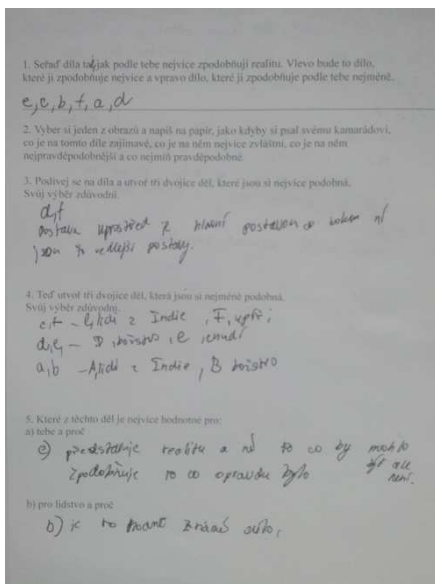 1. Seřaď díla tak, jak podle tebe nejvíce zpodobňují realitu. Vlevo bude to dílo,
které ji zpodobňuje nejvíce a vpravo dílo, které ji zpodobňuje podle tebe nejméně.
e, c, b, f, a, d
2. Vyber si jeden z obrazů a napiš na papír, jako kdyby si psal svému kamarádovi,
co je na tomto díle zajímavé, co je na něm nejvíce zvláštní, co je na něm
nejpravděpodobnější a co nejmíň pravděpodobné.
3. Podívej se na díla a utvoř tři dvojice děl, které jsou si nejvíce podobná.
Svůj výběr zdůvodni.
d, f
postava uprostřed je hlavní postavou a kolem ní
jsou vedlejší postavy.
4. Teď utvoř tři dvojice děl, která jsou si nejméně podobná.
Svůj výběr zdůvodni.
z Indie, F,
d, e, – D, božstvo, e
a, b – A, lidi z Indie, B božstvo
5. Které z těchto děl je nejvíce hodnotné pro:
a) tebe a proč
e) představuje realitu a ne to co by mohlo
být ale
zpodobňuje to co opravdu bylo
není.
b) pro lidstvo a proč
b) je to známé dílo.